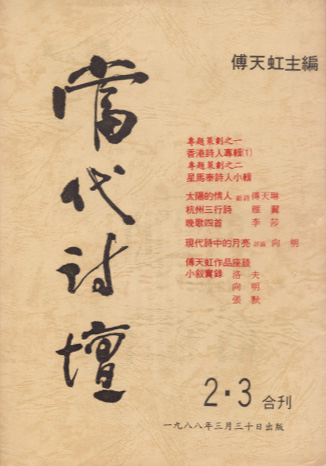 傅天虹主編
當代詩壇
專題策劃之一
香港詩人專輯(1)
專題策劃之二
星馬泰詩人小輯
太陽的情人 組詩 傅天琳
杭州三行詩 雁翼
晚歌四首 李莎
現代詩中的月亮 評論 向明
傅天虹作品座談
小敍實錄 洛夫
向明
張默
2·3 合刊
一九八八年三月三十日出版